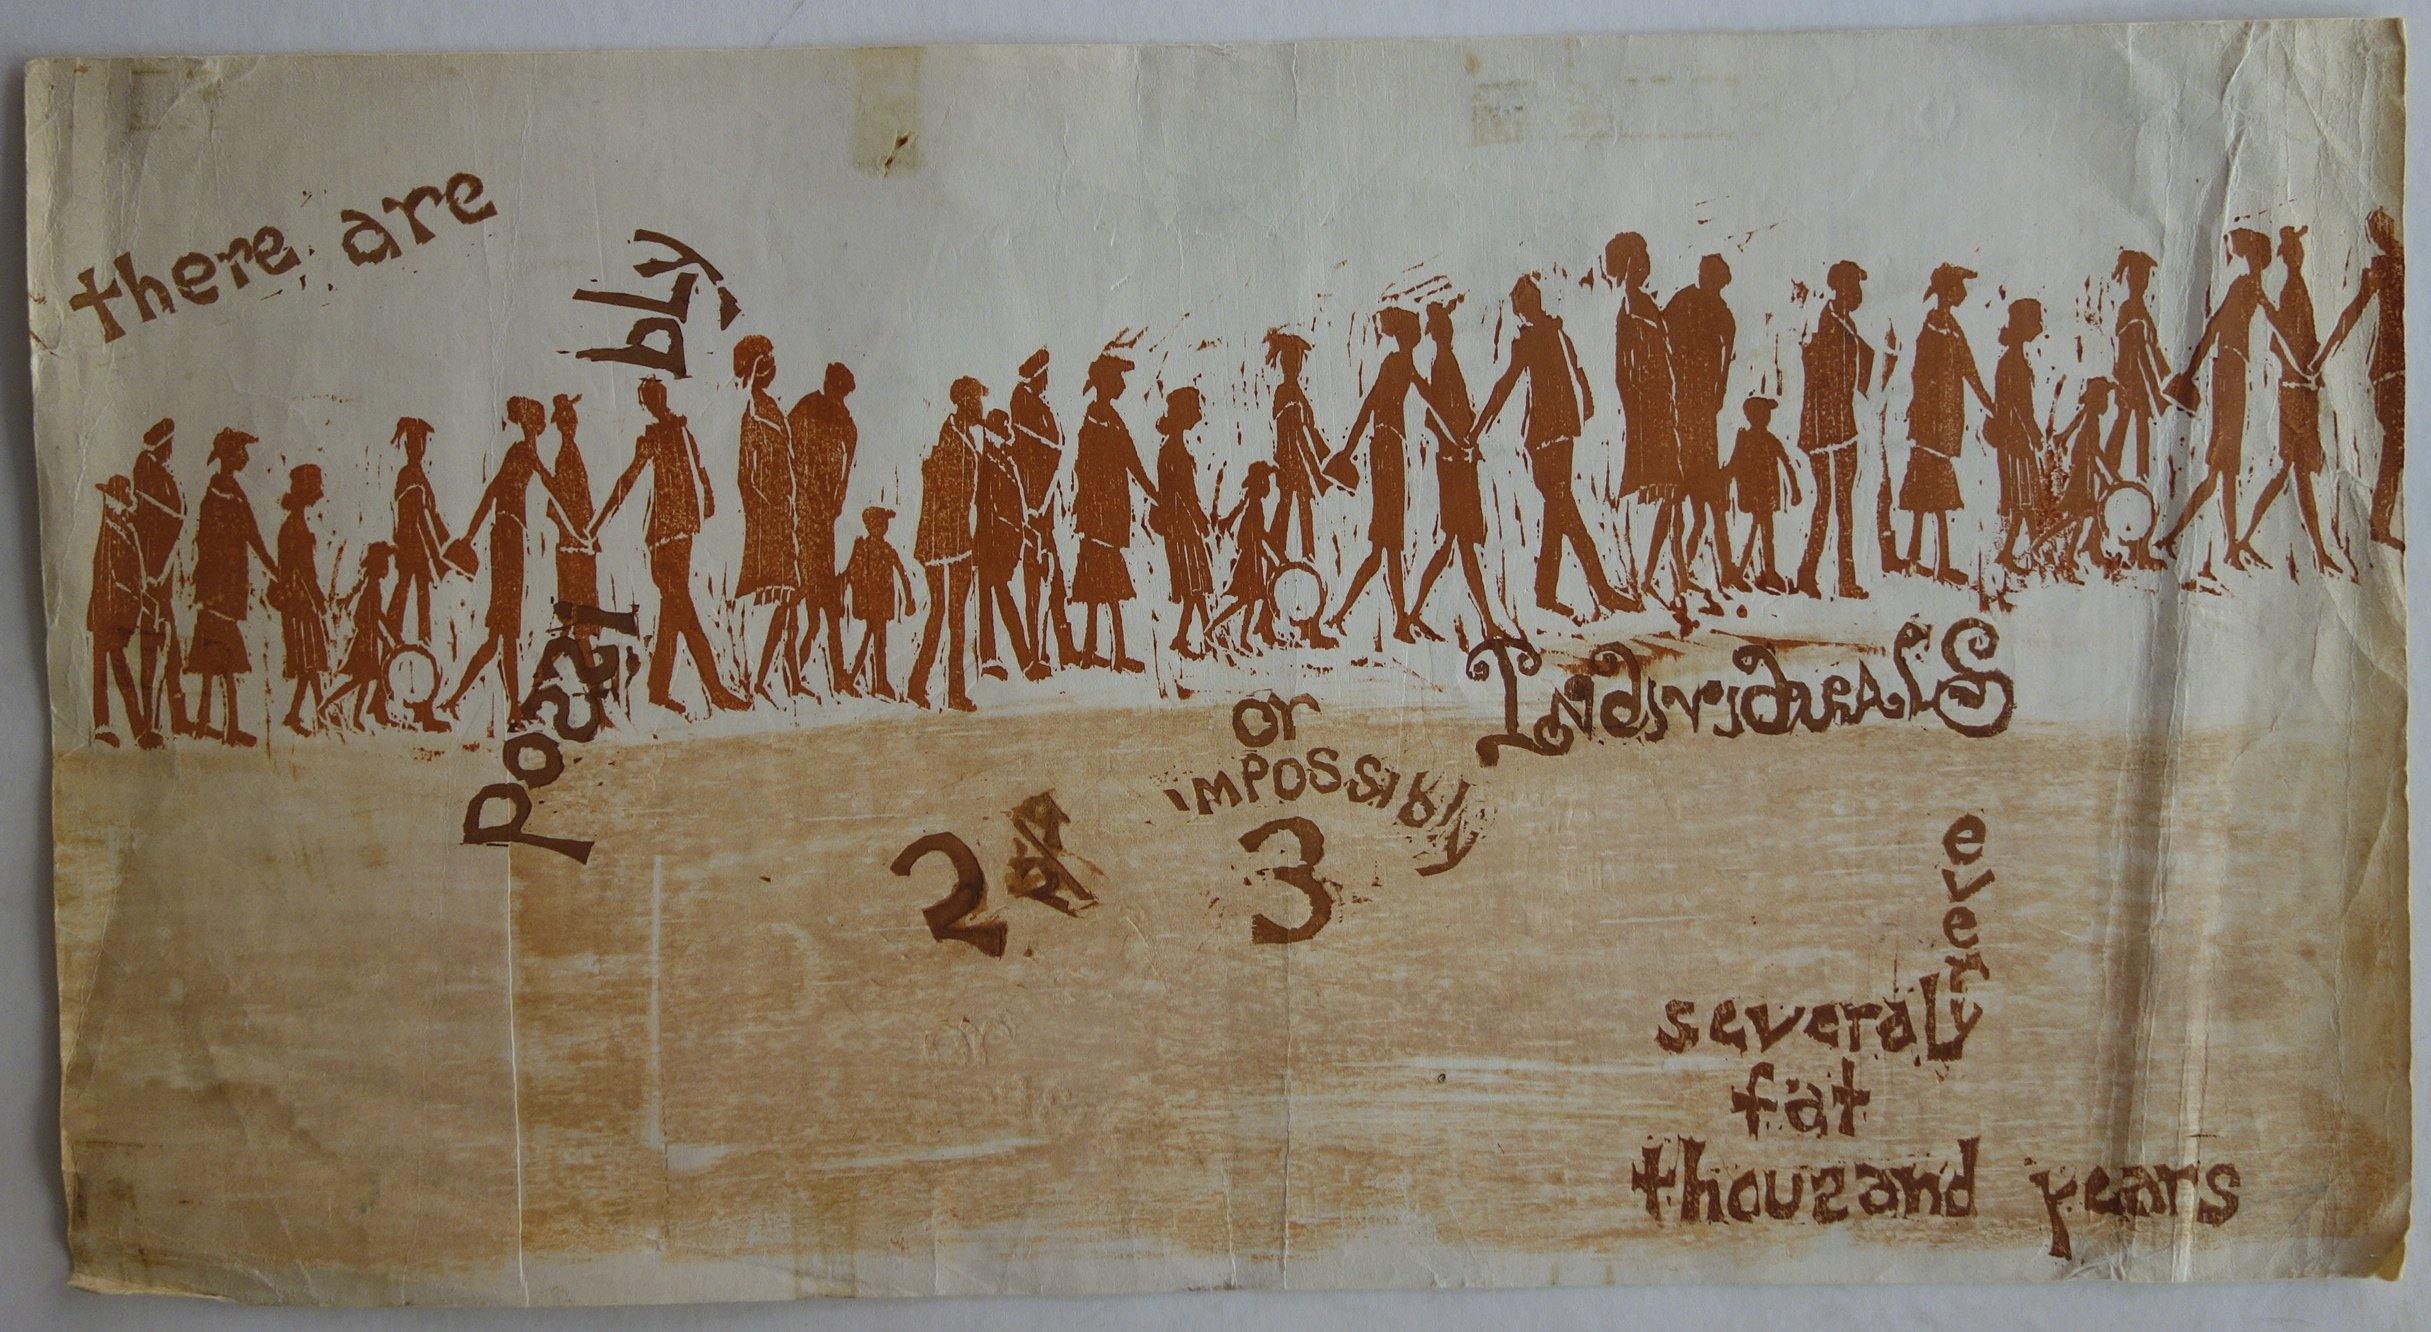 there are
possibly
2 1/2
or
impossibly
3
Individuals
every
severaly
fat
thousand years